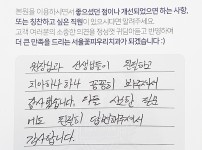 본원을 이용하시면서 좋으셨던 점이나 개선되었으면 하는 사항,
또는 칭찬하고 싶은 직원이 있으시다면 말해주세요.
고객 여러분의 소중한 의견을 정성껏 귀담아듣고 반영하여
더 큰 만족을 드리는 서울꽃피우리치과가 되겠습니다 :)
원장님과 선생님들이 친절하고
하나하나 꼼꼼히 봐주셔서
감사합니다. 사소한 질문
에도 친절히 답변해주셔서
감사합니다.